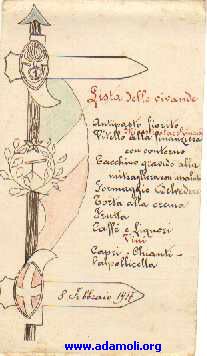 Lista delle vivande
Antipasto fiorito
Vitello alla finanziera
con contorno
Tacchino gravido alla
mitragliera con insalata
Formaggio Belvedere
Torta alla crema
Frutta
Caffè e Liquori
Vini
Capri - Chianti -
Valpolicella
8 Febbraio
www.adamoli.org